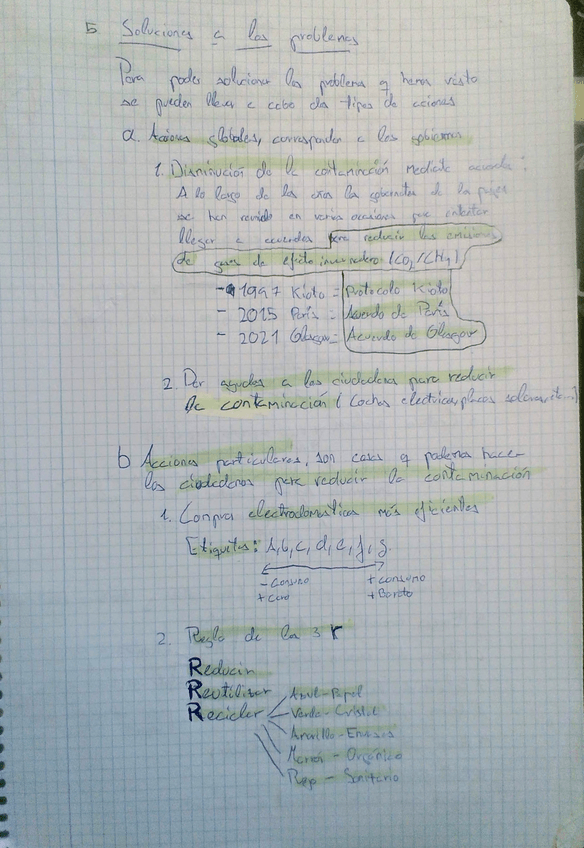 5 Soluciones a los problemas
Para poder solucionar los problemas q hemos visto
se pueden llevar a cabo dos tipos de acciones
a. Acciones globales, corresponden a los gobiernos
1. Disminución de la contaminación mediante acuerdos:
A lo largo de los años los gobernantes de los países
se han reunido en varias ocasiones para intentar
llegar a acuerdos para reducir las emisiones
de gases de efecto invernadero (CO2/CH4)
- 1997 Kioto = Protocolo Kioto
- 2015 París = Acuerdo de París
- 2021 Glasgow = Acuerdo de Glasgow
2. Dar ayudas a los ciudadanos para reducir
la contaminación (Coches electricos, placas solares, etc...)
b Acciones particulares, son cosas q podemos hacer
los ciudadanos para reducir la contaminación
1. Comprar electrodomesticos más eficientes
Etiquetas: A, b, c, d, e, f, g.
- Consumo + consumo
+ Caro + Barato
2. Regla de las 3 r
Reducir
Reutilizar
Reciclar
Azul - Papel
Verde - Cristal
Amarillo - Envases
Marrón - Orgánico
- Sanitario